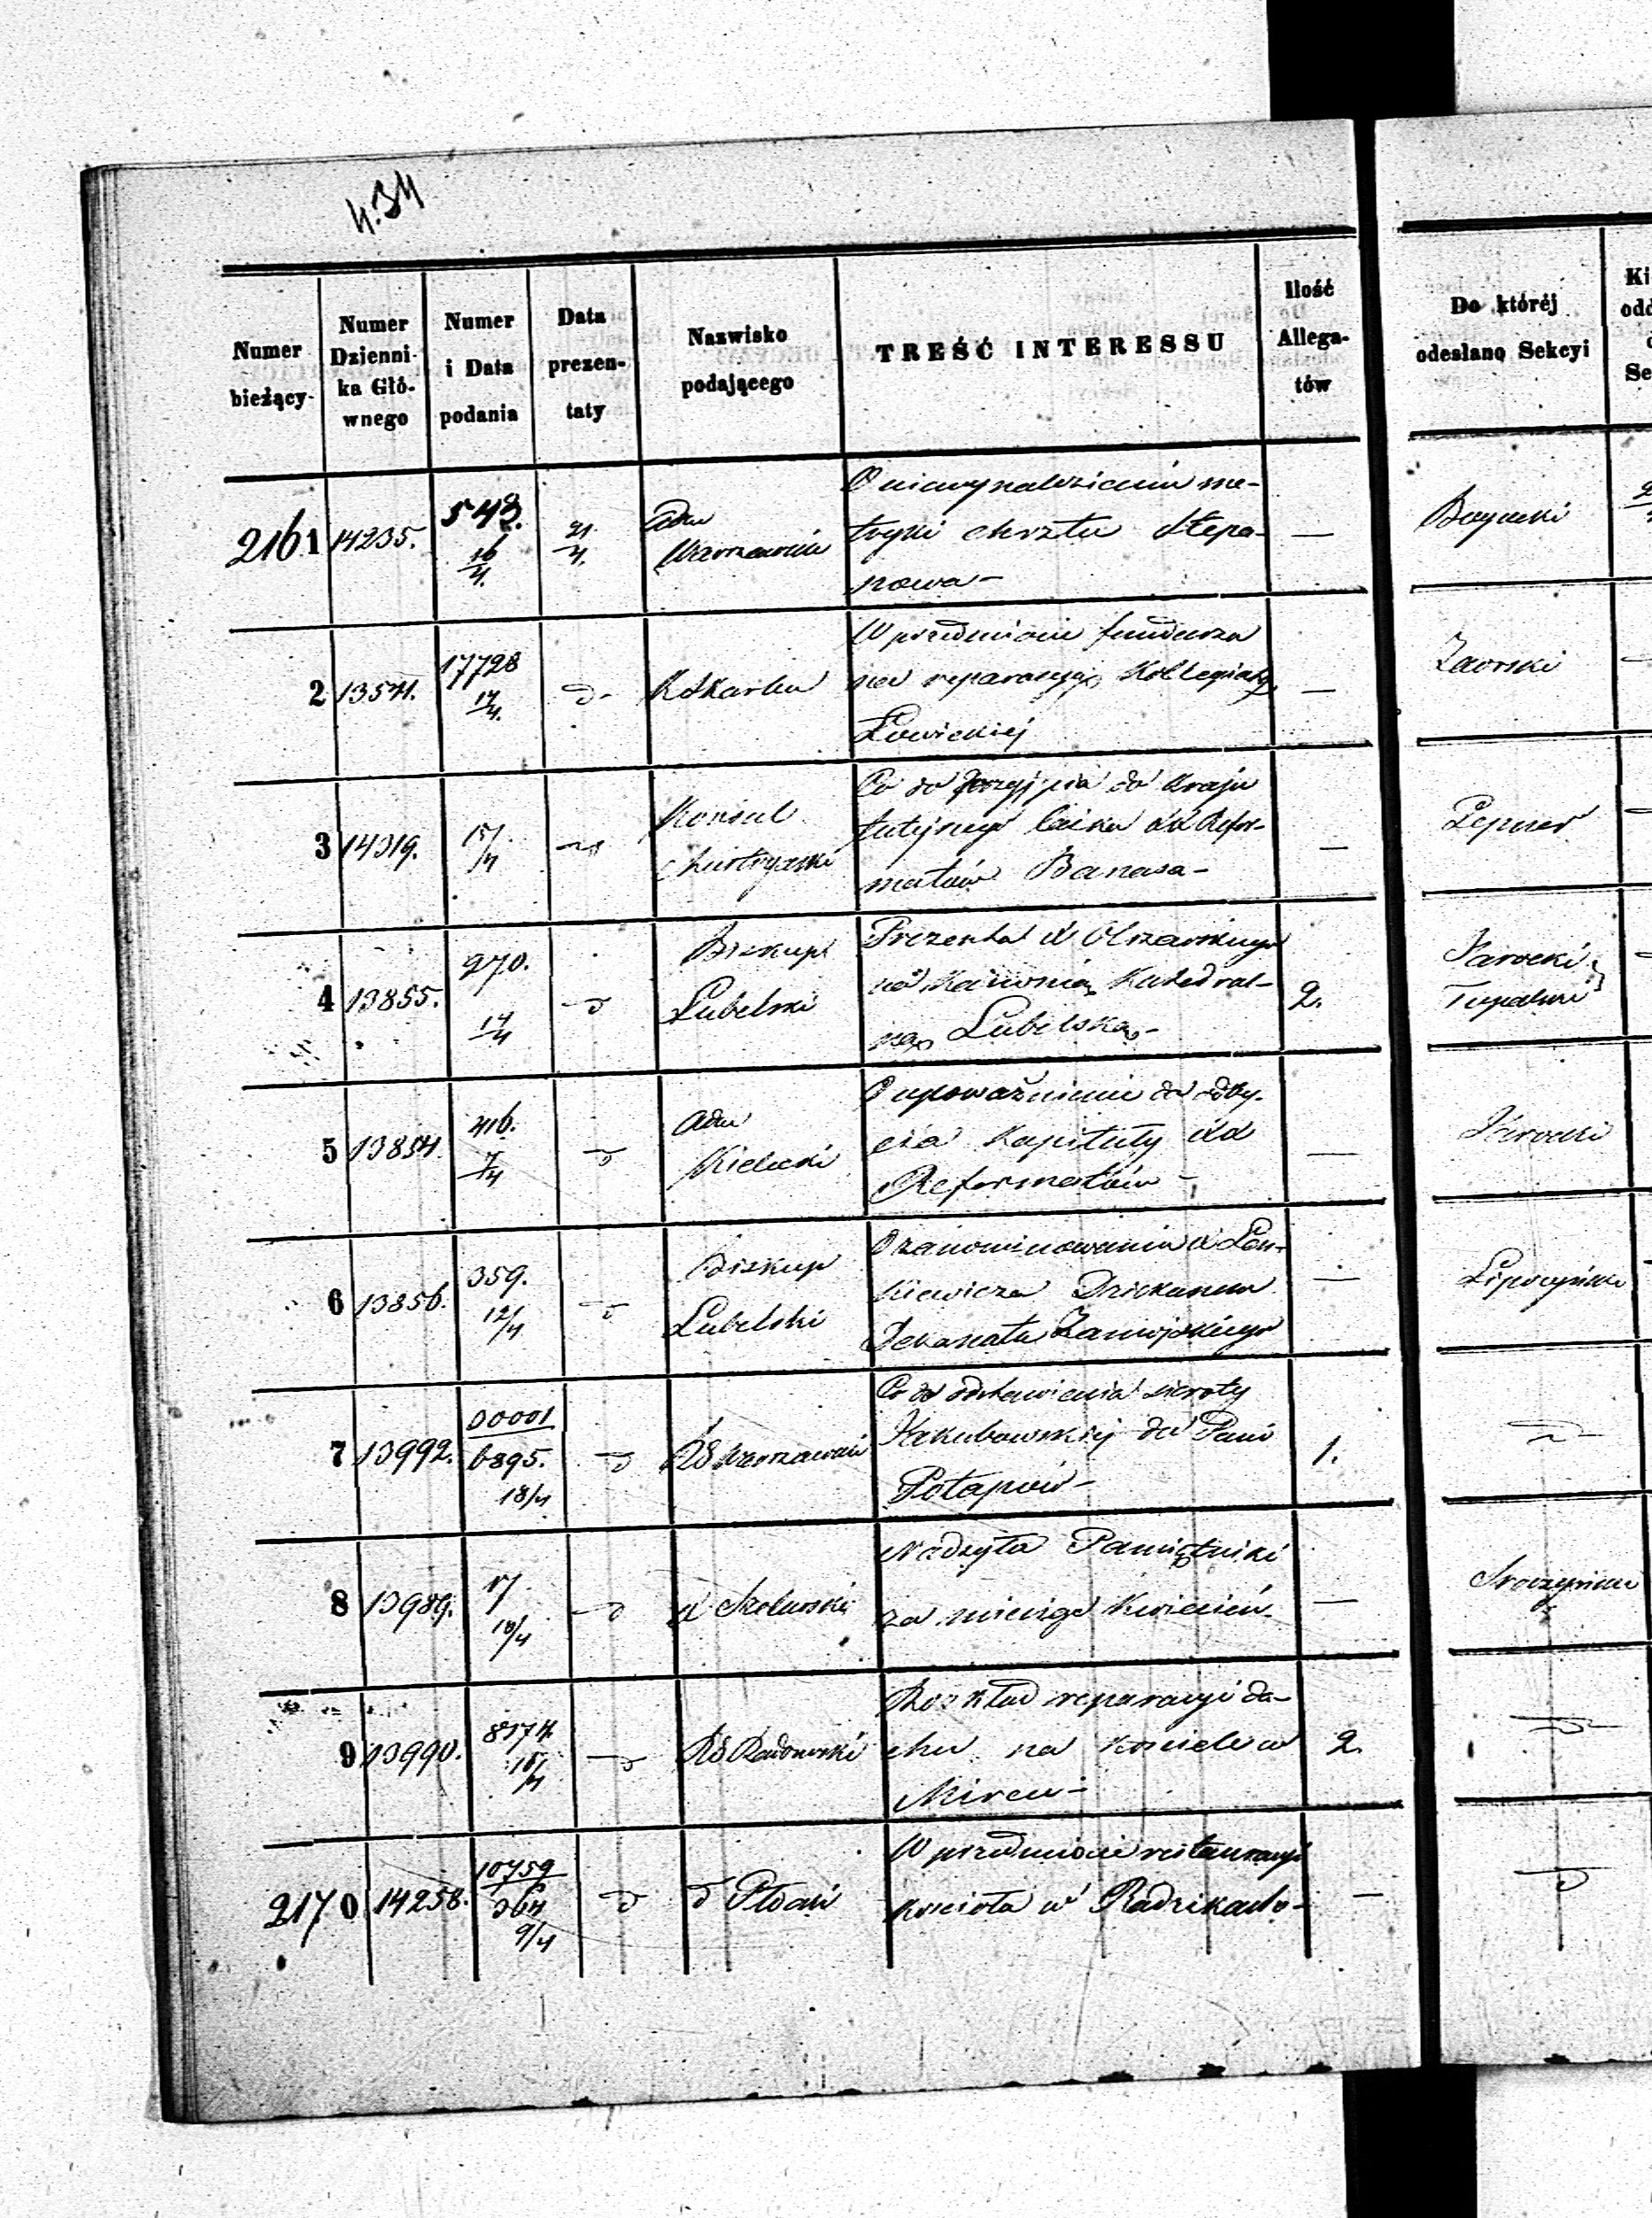 434
Numer bieżący
Numer Dzienni-
ka Głó-
wnego
Numer
i Data
podania
Data
prezen-
taty
Nazwisko
podającego
TREŚĆ INTERESSU
Ilość
Allega-
tów
Do któréj
odesłano Sekcyi
2161 14235. 543. 16/4. 21/4. Adm Warszawski
O niewynalezieniu me-
tryki chrztu Stepa-
nowa –
—
2 13571. 17728 17/4. d- K Skarbu
W przedmiocie funduszu
na reparacyją Kollegiaty
Łowickiéj
—
Zaorski
3 14319. 15/4 Konsul Austryacki
Co do przyjęcia do Kraju
tutejszego laika XX Refor-
matów Banasa –
—
Lepner
4 13855. 270. 17/4 d Biskup Lubelski
Prezenta X Olszańskiego
na Kanonią Katedral-
ną Lubelską –
2.
Jarocki
5 13854. 416. 7/4 d Adm Kielecki
O upoważnienie do odby-
cia Kapituły XX
Reformatów –
—
Jarocki
6 13856. 359. 12/4 d Biskup Lubelski
O zanominowaniu X Len-
kiewicza Dziekanem
Dekanatu Zamojskiego
—
7 13992. 6895. 18/4 d RG Warszawski
Co do odstawienia sieroty
Jakubowskiéj do Pani
Potapow –
1.
8 13989. 17 18/4 d X
Nadsyła Pamiętniki
za miesiąc Kwiecień
—
9 13990. 8174. 15/4 d RG Radomski
Rozkład reparacyi da-
chu na kościele w
Mircu –
2.
2170 14258. 10759 364 9/4 d d Płocki
W przedmiocie restauracyi
kościoła w
—
d